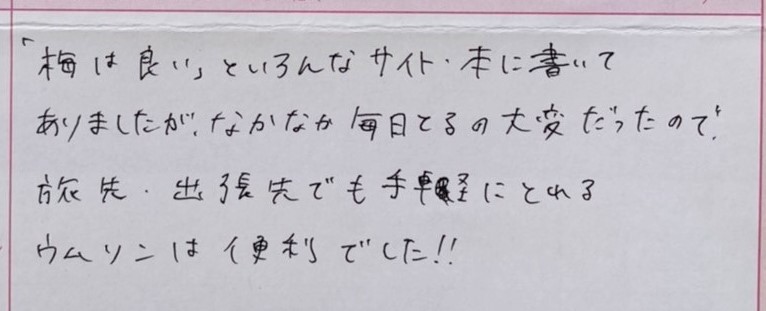 「梅は良い」といろんなサイト・本に書いて
ありましたが、なかなか毎日とるの大変だったので、
旅先・出張先でも手軽にとれる
ウムソンは便利でした!!